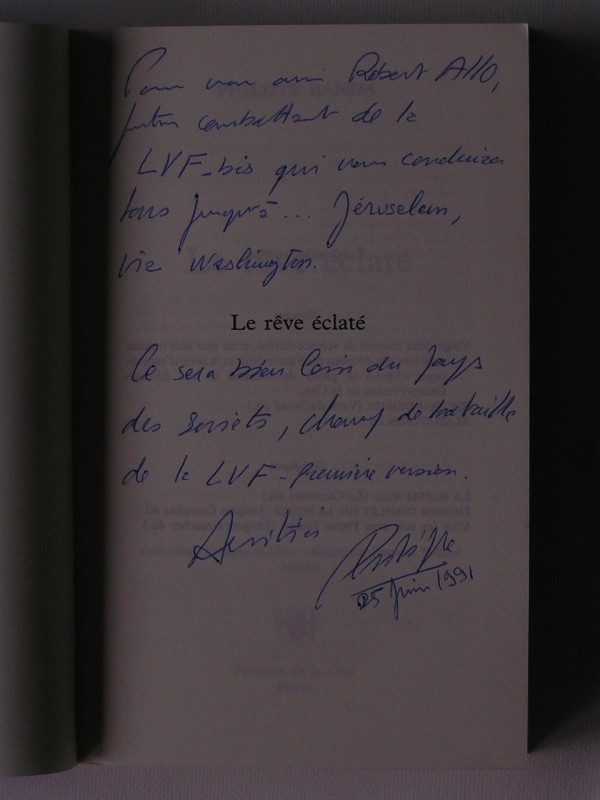 Pour mon ami Robert Allo,
futur combattant de la
LVF-bis qui nous conduira
tous jusqu'à... Jérusalem,
via Washington.
Le rêve éclaté
Ce sera bien loin du pays
des soviets, champ de bataille
de la LVF-première version.
Amitiés
25 juin 1991